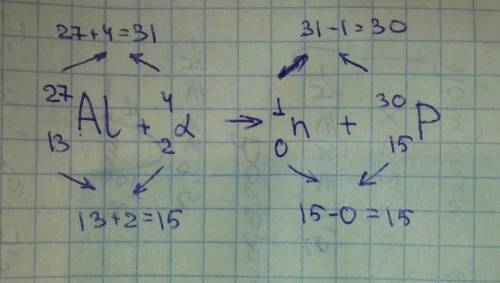 27+4=31 31-1=30
²⁷₁₃Al + ⁴₂α → ¹₀n + ³⁰₁₅P
13+2=15 15-0=15